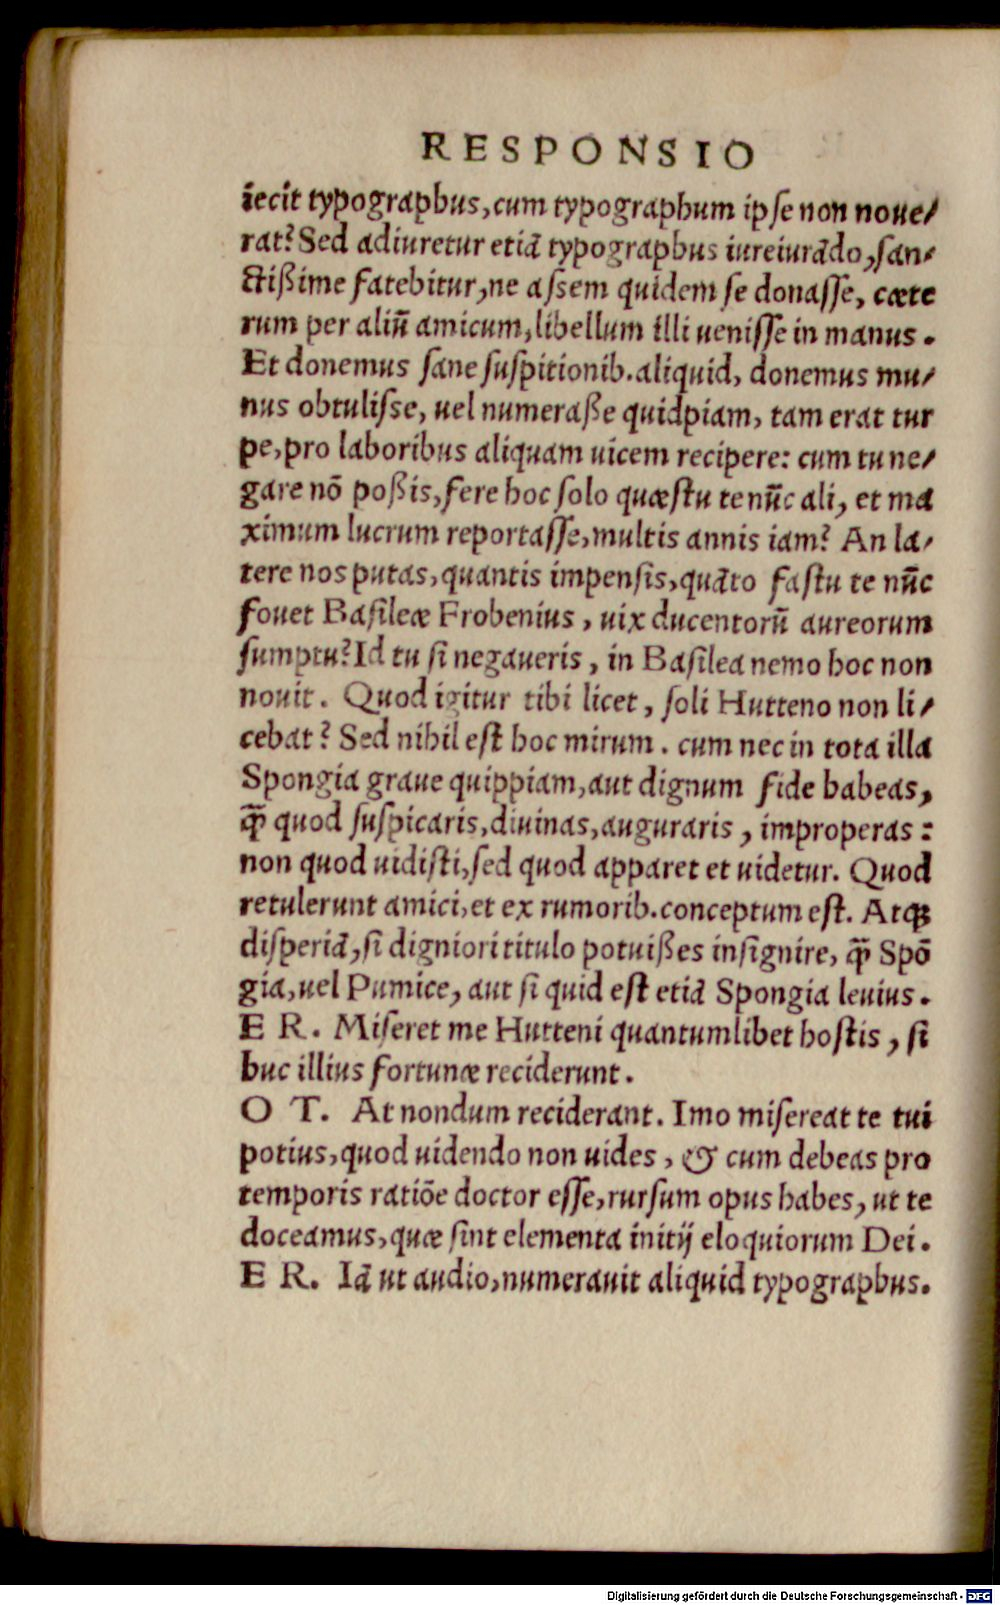 RESPONSIO
iecit typographus, cum typographum ipse non noue/
rat? Sed adiuretur etiā typographus iureiurādo, san/
ctißime fatebitur, ne assem quidem se donasse, cæte
rum per aliū amicum, libellum illi uenisse in manus.
Et donemus sane suspitionib. aliquid, donemus mu/
nus obtulisse, uel numeraße quidpiam, tam erat tur
pe, pro laboribus aliquam uicem recipere: cum tu ne/
gare nō poßis, fere hoc solo quæstu te nūc ali, et ma
ximum lucrum reportasse, multis annis iam? An la/
tere nos putas, quantis impensis, quāto fastu te nūc
fouet Basileæ Frobenius, uix ducentorū aureorum
sumptu? Id tu si negaueris, in Basilea nemo hoc non
nouit. Quod igitur tibi licet, soli Hutteno non li/
cebat? Sed nihil est hoc mirum. cum nec in tota illa
Spongia graue quippiam, aut dignum fide habeas,
q̄ quod suspicaris, diuinas, auguraris, improperas:
non quod uidisti, sed quod apparet et uidetur. Quod
retulerunt amici, et ex rumorib. conceptum est. Atqꝫ
disperiā, si digniori titulo potuißes insignire, q̄ Spō
gia, uel Pumice, aut si quid est etiā Spongia leuius.
E R. Miseret me Hutteni quantumlibet hostis, si
huc illius fortunæ reciderunt.
O T. At nondum reciderant. Imo misereat te tui
potius, quod uidendo non uides, & cum debeas pro
temporis ratiōe doctor esse, rursum opus habes, ut te
doceamus, quæ sint elementa initij eloquiorum Dei.
E R. Iā ut audio, numerauit aliquid typographus.
Digitalisierung gefördert durch die Deutsche Forschungsgemeinschaft - DFG